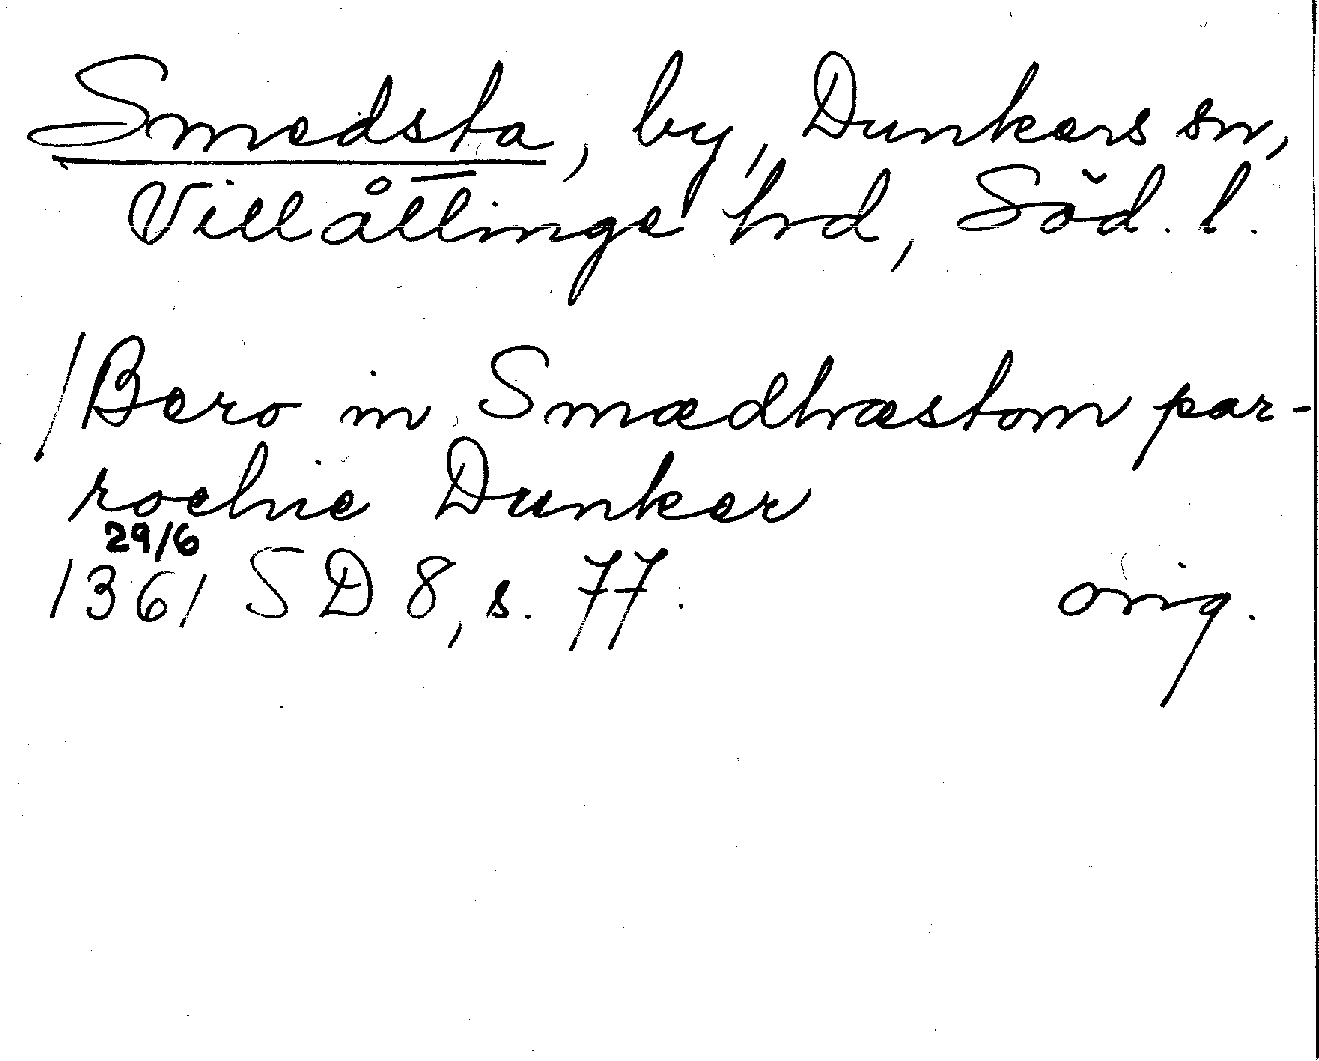 Smedsta, by, Dunkers sn,
Villåttinge hd, Söd. l.
/Bero in Smædhræstom par-
rochie Dunker
29/6
1361 SD 8, s. 77. orig.